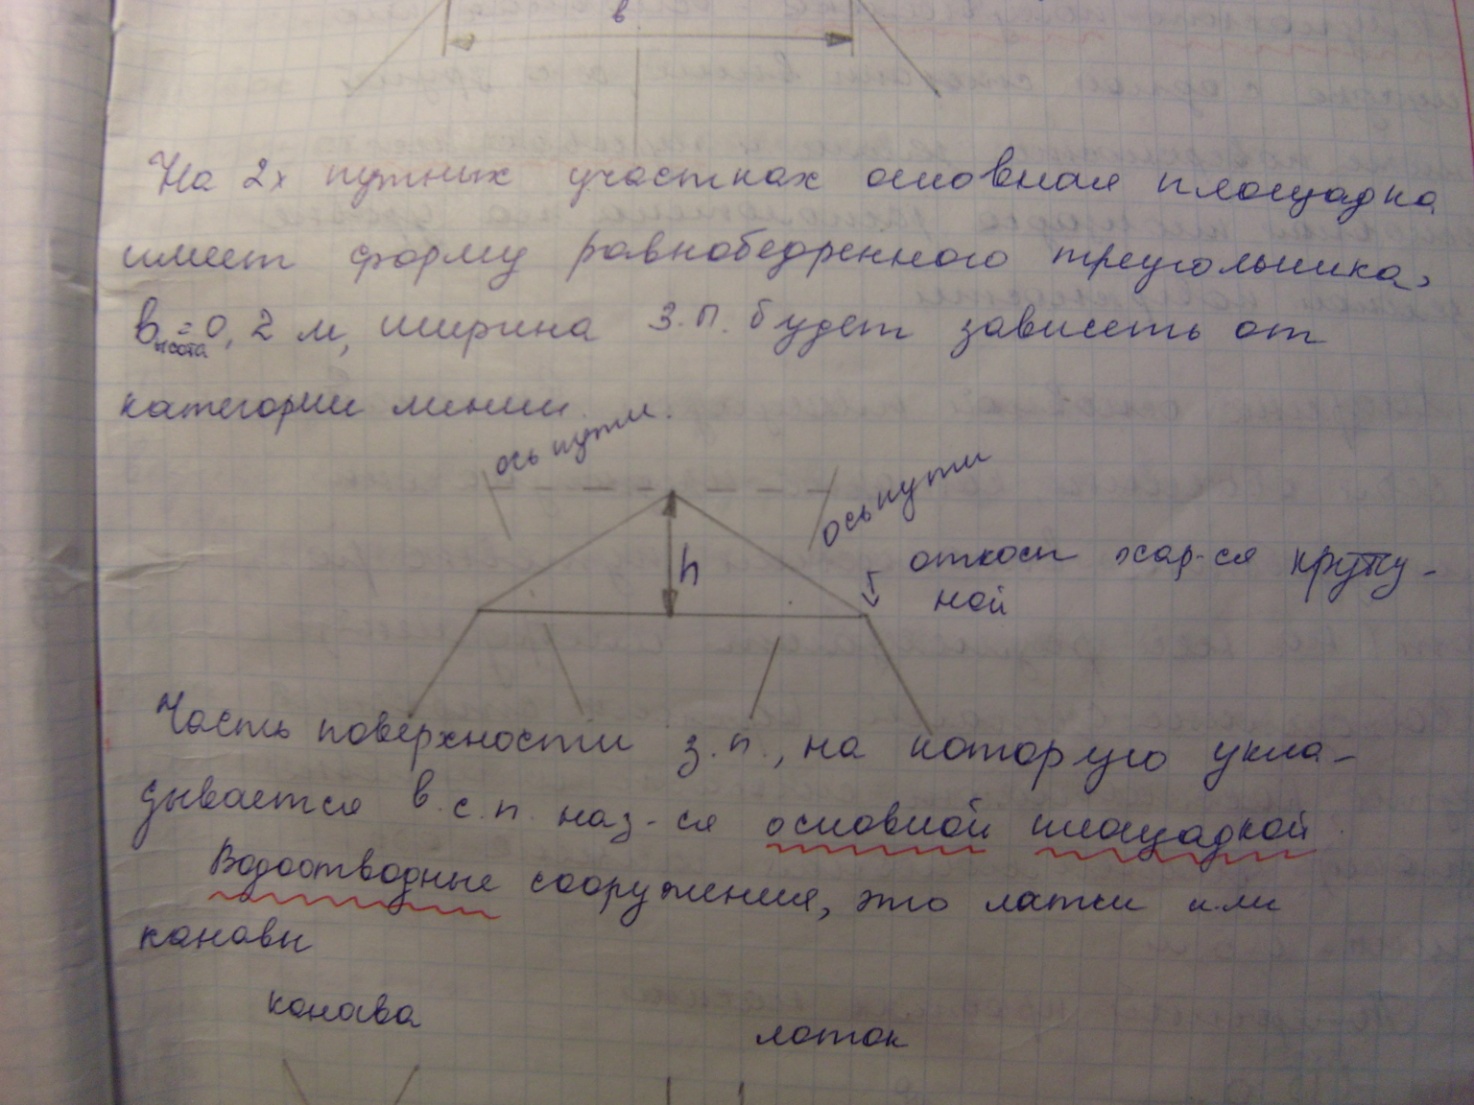 в
На 2х путных участках основная площадка
имеет форму равнобедренного треугольника,
высота = 0,2 м, ширина з.п. будет зависеть от
категории линии.
ось пути.
ось пути
h
откосы хар-ся крутиз-
ной
Часть поверхности з.п., на которую укла-
дывается в.с.п. наз-ся основной площадкой.
Водоотводные сооружения, это лотки или
канавы
канава
лоток